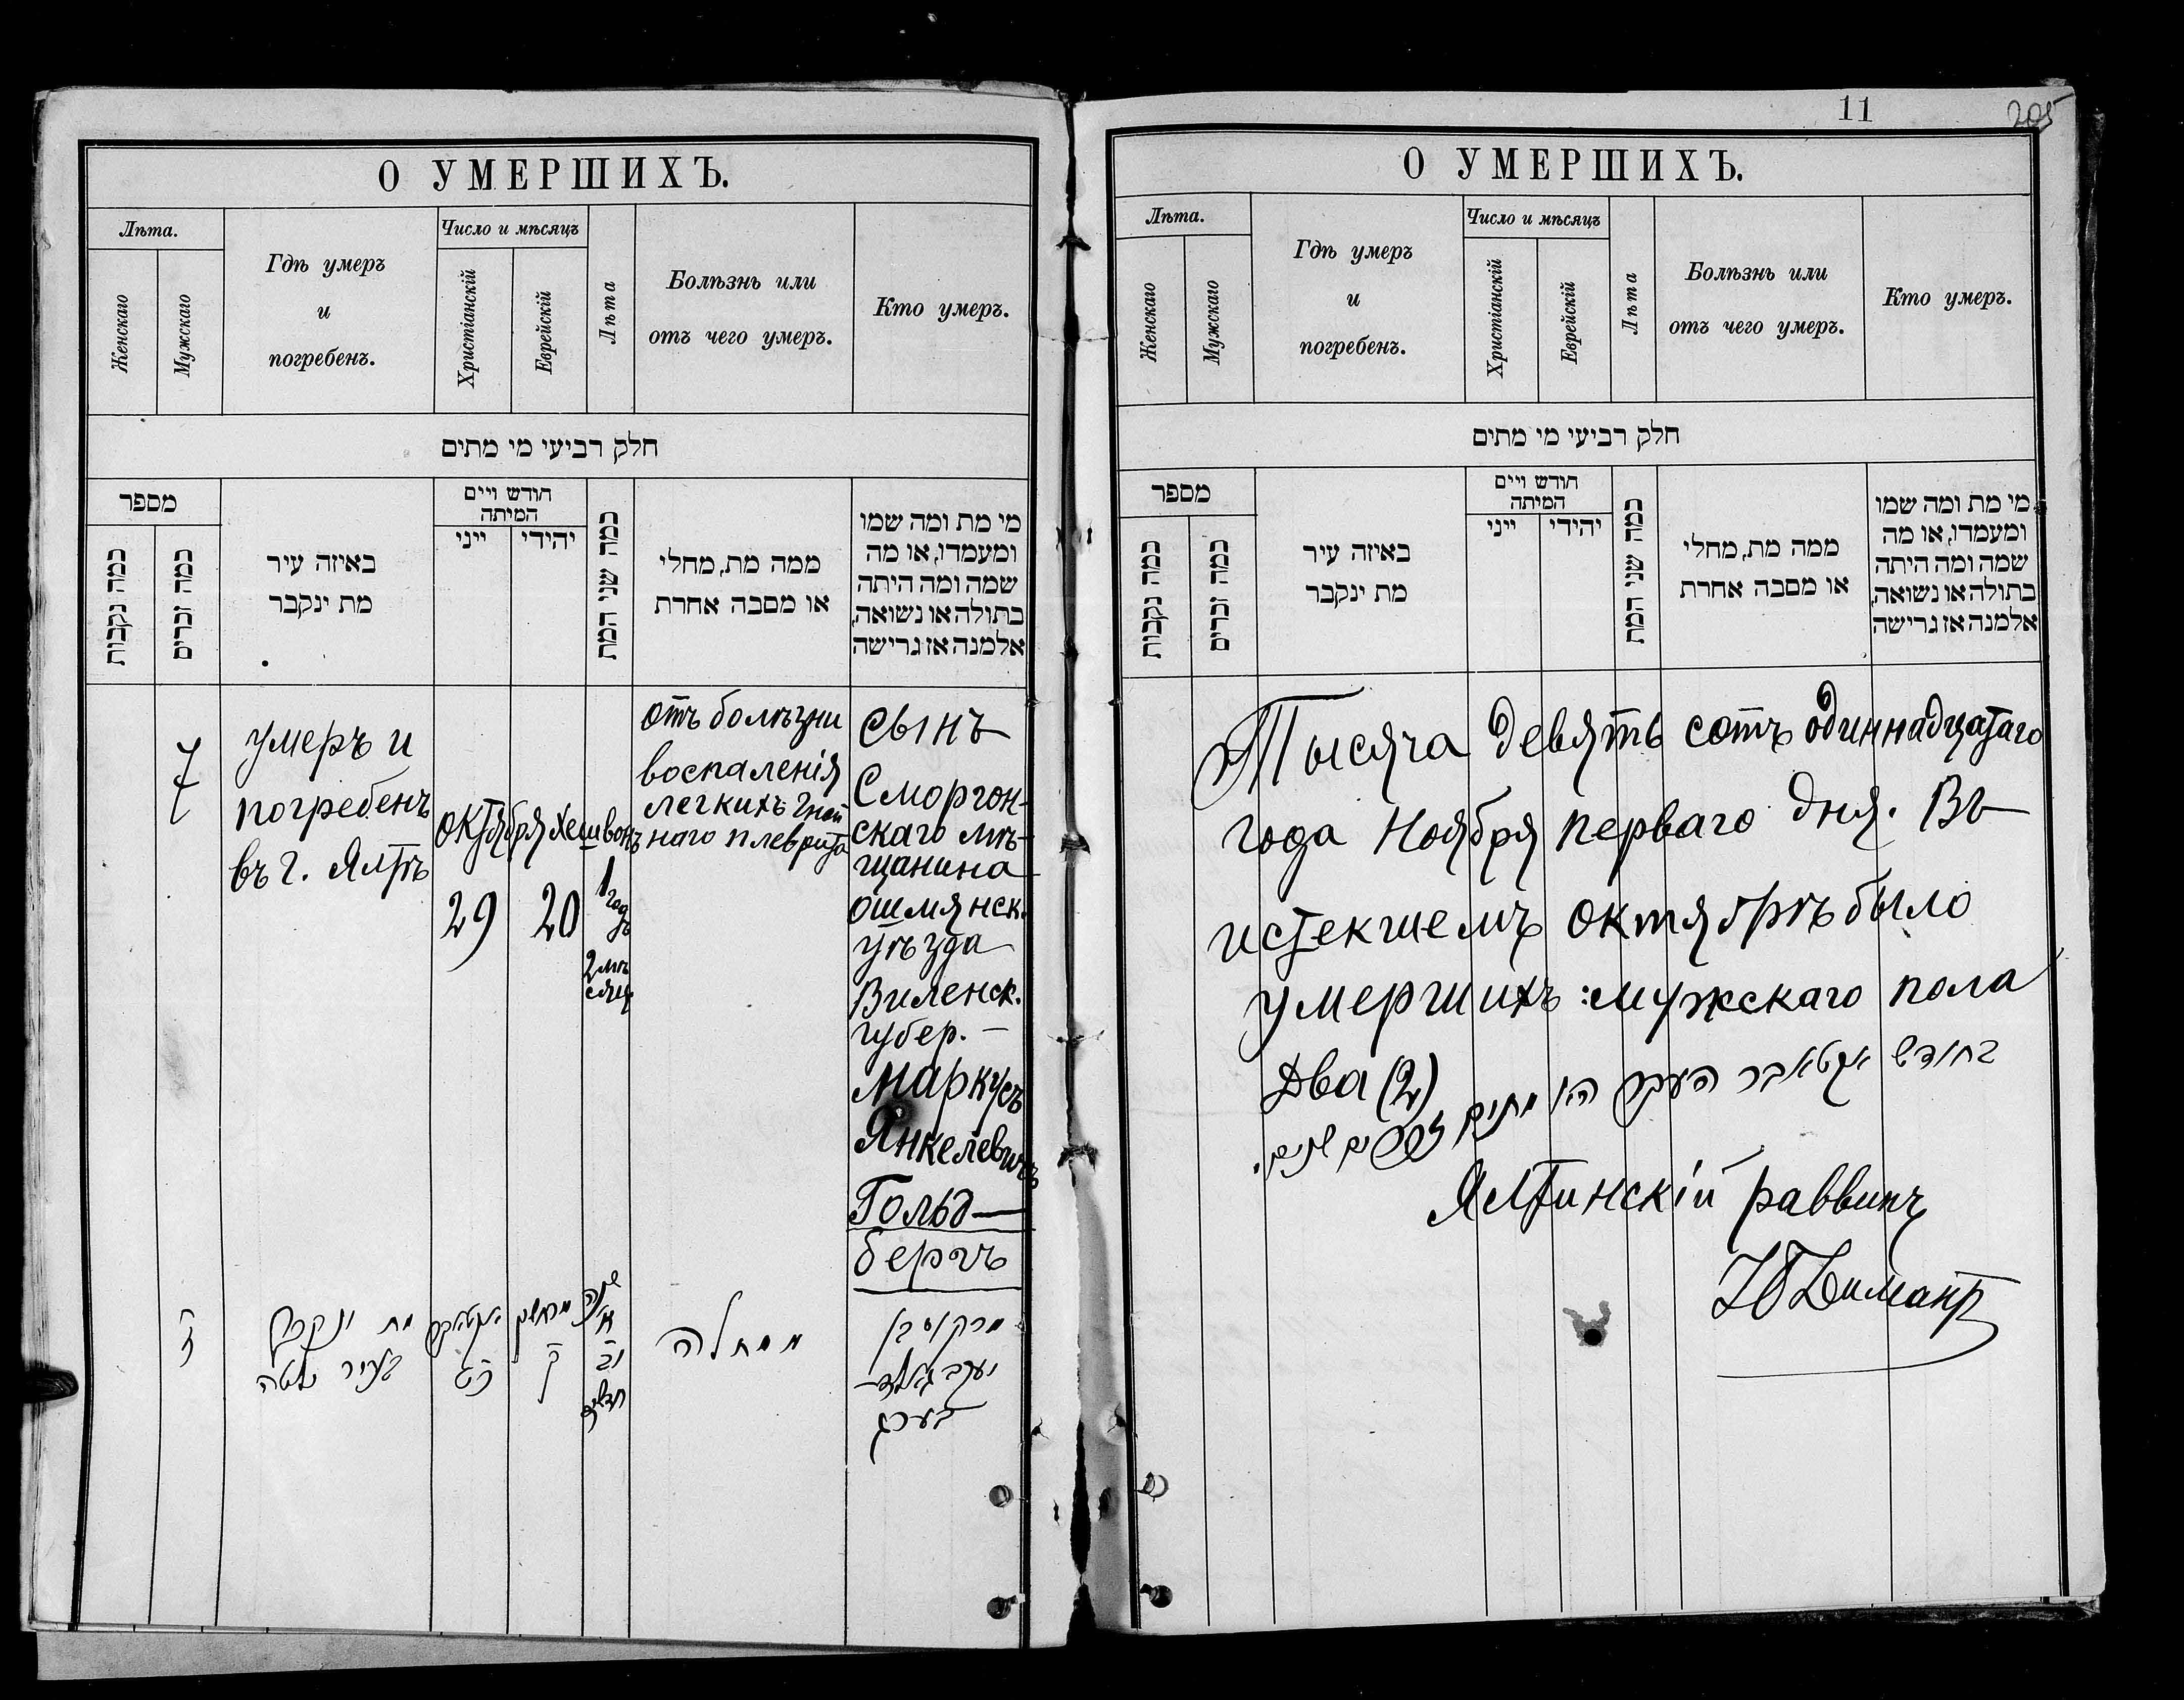 О УМЕРШИХЪ.
Лѣта.
Женскаго
Мужскаго
Гдѣ умеръ
и
погребенъ.
Число и мѣсяцъ
Христіанскій
Еврейскій
Лѣта
Болѣзнь или
отъ чего умеръ.
Кто умеръ.
חלק רביעי מי מתים
מספר
כמה נקבות
כמה זכרים
באיזה עיר
מת ינקבר
חודש ויים
המיתה
ייני
יהידי
כמה שני המת
ממה מת, מחלי
או מסבה אחרת
מי מת ומה שמו
ומעמדו, או מה
שמה ומה היתה
בתולה או נשואה,
אלמנה אז גרישה
7
умеръ и
погребенъ
въ г. Ялтѣ
октября
29
хешвонъ
20
1
годъ
2 мѣ
сяц.
отъ болѣзни
воспаленія
легкихъ гной
наго плеврита
сынъ
Сморгон-
скаго мѣ-
щанина
ошмянск.
уѣзда
Виленск.
губер. —
Маркусъ
Янкелевичъ
Гольд—
бергъ
ז
מת ונקבר
בעיר יאלטה
אקטאבר
כט
מרחשון
כ
שנה
א'
וב'
חדשים
ממחלה
מרקוס בן
יעקב גאלד—
בערג
11
205
О УМЕРШИХЪ.
Лѣта.
Женскаго
Мужскаго
Гдѣ умеръ
и
погребенъ.
Число и мѣсяцъ
Христіанскій
Еврейскій
Лѣта
Болѣзнь или
отъ чего умеръ.
Кто умеръ.
חלק רביעי מי מתים
מספר
כמה נקבות
כמה זכרים
באיזה עיר
מת ינקבר
חודש ויים
המיתה
ייני
יהידי
כמה שני המת
ממה מת, מחלי
או מסבה אחרת
מי מת ומה שמו
ומעמדו, או מה
שמה ומה היתה
בתולה או נשואה,
אלמנה אז גרישה
Тысяча девять сотъ одиннадцатаго
года Ноября перваго дня. Въ
истекшемъ октябрѣ было
умершихъ: мужскаго пола
Два (2)
בחודש אקטאבר העבר היו מתים
זכרים שנים.
Ялтинскій раввинъ